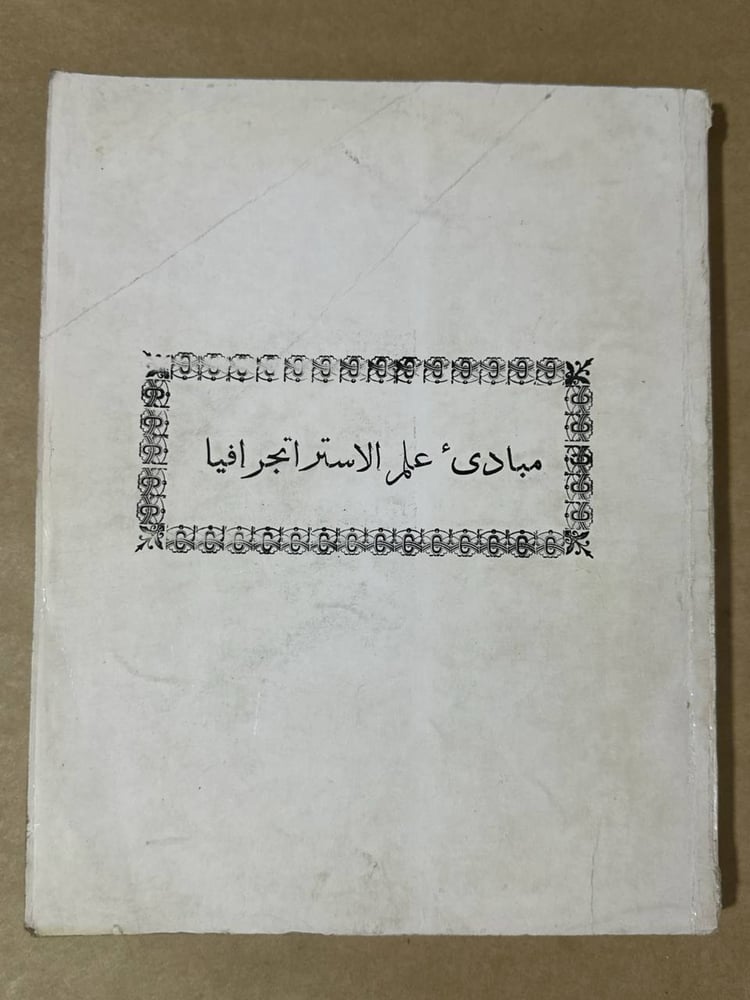 مبادىء علم الاستراتجرافيا